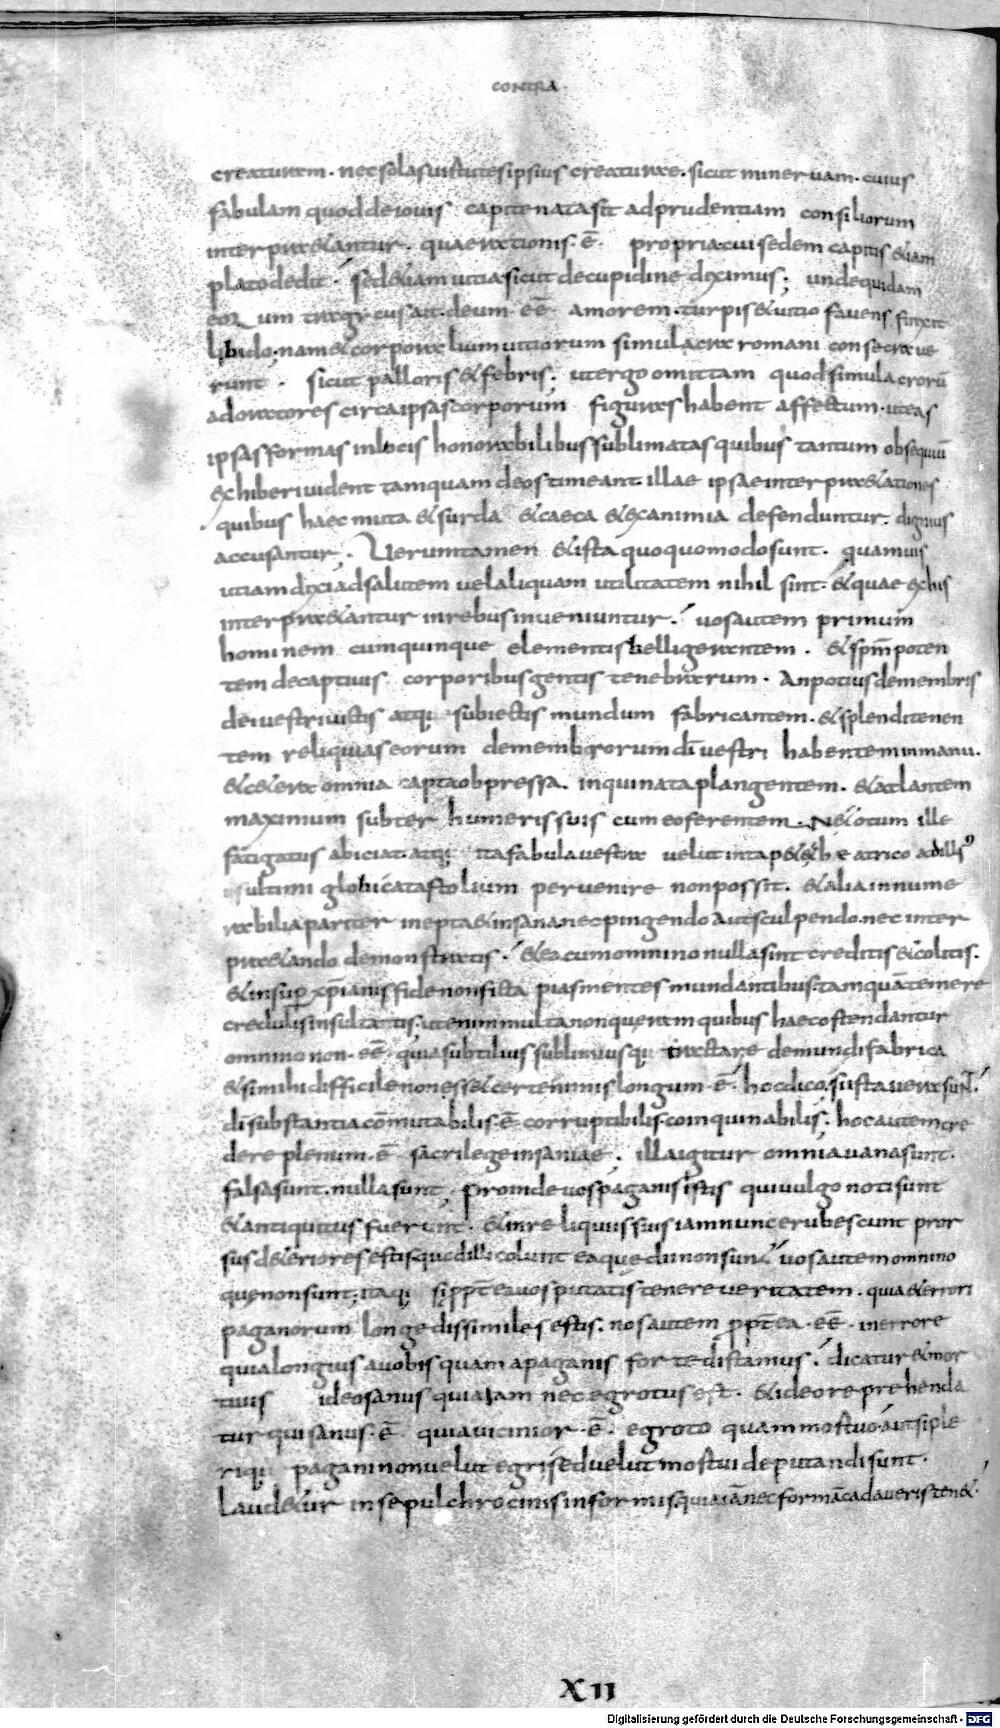 CONTRA
creaturam. nec solas uirtutes ipsius creaturae. sicut mineruam. cuius
fabulam quod de iouis capite nata sit ad prudentiam consiliorum
interpraetantur. quae rationis. ē propria cui sedem capitis etiam
plato dedit. sed etiam uitia sicut de cupidine diximus; unde quidam
eorum tragicus ait. deum. eē amorem. turpis et uitio fauens finxit
libido. nam et corporalium uitiorum simulacra romani consecraue
runt. sicut palloris et febris; ut ergo omittam quod simulacrorū
adoratores circa ipsas corporum figuras habent affectum. ut eas
ipsas formas in locis honorabilibus sublimatas quibus tantum obsequiū
exhiberi uident tamquam deos timeant. illae ipsae interpraetationes
quibus haec muta et surda et caeca et exanimia defenduntur. dignius
accusantur. Uerumtamen et ista quoquomodo sunt. quamuis
ut iam dixi ad salutem uel aliquam utilitatem nihil sint. et quae ex his
interpraetantur in rebus inueniuntur. uos autem primum
hominem cum quinque elementis belligerantem. et spm̄ poten
tem de captiuis corporibus gentis tenebrarum. An potius de membris
dei uestri uictis atq; subiectis mundum fabricantem. et splenditenen
tem reliquias eorum de membrorum dī uestri habentem in manu.
et cetera omnia capta obpressa. inquinata plangentem. et atlantem
maximum subter humeris suis cum eo ferentem. Ne totum ille
fatigatus abiciat. atq; ita fabula uestra uelut in
ultimi globi cataftolium peruenire non possit. et alia innume
rabilia pariter inepta et insana nec pingendo aut sculpendo. nec inter
praetando demonstratis. et ea cum omnino nulla sint creditis et colitis.
et insup xp̄ianis fide non ficta pias mentes mundantibus. tamquā temere
credulis insultatis. ut enim multa non quęram quibus haec ostendantur
omnino non. eē quia subtilius sublimiusq; tractare de mundi fabrica
et simili difficile non esset certe nimis longum. ē hoc dico. si ista uera sunt.
dī substantia cōmutabilis. ē corruptibilis. coinquinabilis. hoc autem cre
dere plenum. ē sacrilege insaniae. illa igitur omnia uana sunt.
falsa sunt. nulla sunt; Proinde uos paganis istis qui uulgo noti sunt
et antiquitus fuerunt. et in reliquiis suis iam nunc erubescunt pror
sus deteriores estis quod illi colunt ea quę dii non sunt uos autem omnino
quę non sunt; itaq; si ppt̄ea uos putatis tenere ueritatem. quia et errori
paganorum longe dissimiles estis. nos autem ppt̄ea. eē. in errore
quia longius a uobis quam a paganis forte distamus. dicatur et mor
tuus ideo sanus quia iam nec egrotus est. et ideo reprehenda
tur qui sanus. ē quia uicinior. ē. egroto quam mortuo. aut si ple
riq; pagani non uelut egri sed uelut mortui deputandi sunt.
Laudetur in sepulchro cinis informis quia iā nec formā cadaueris tenet.
XII
Digitalisierung gefördert durch die Deutsche Forschungsgemeinschaft - DFG